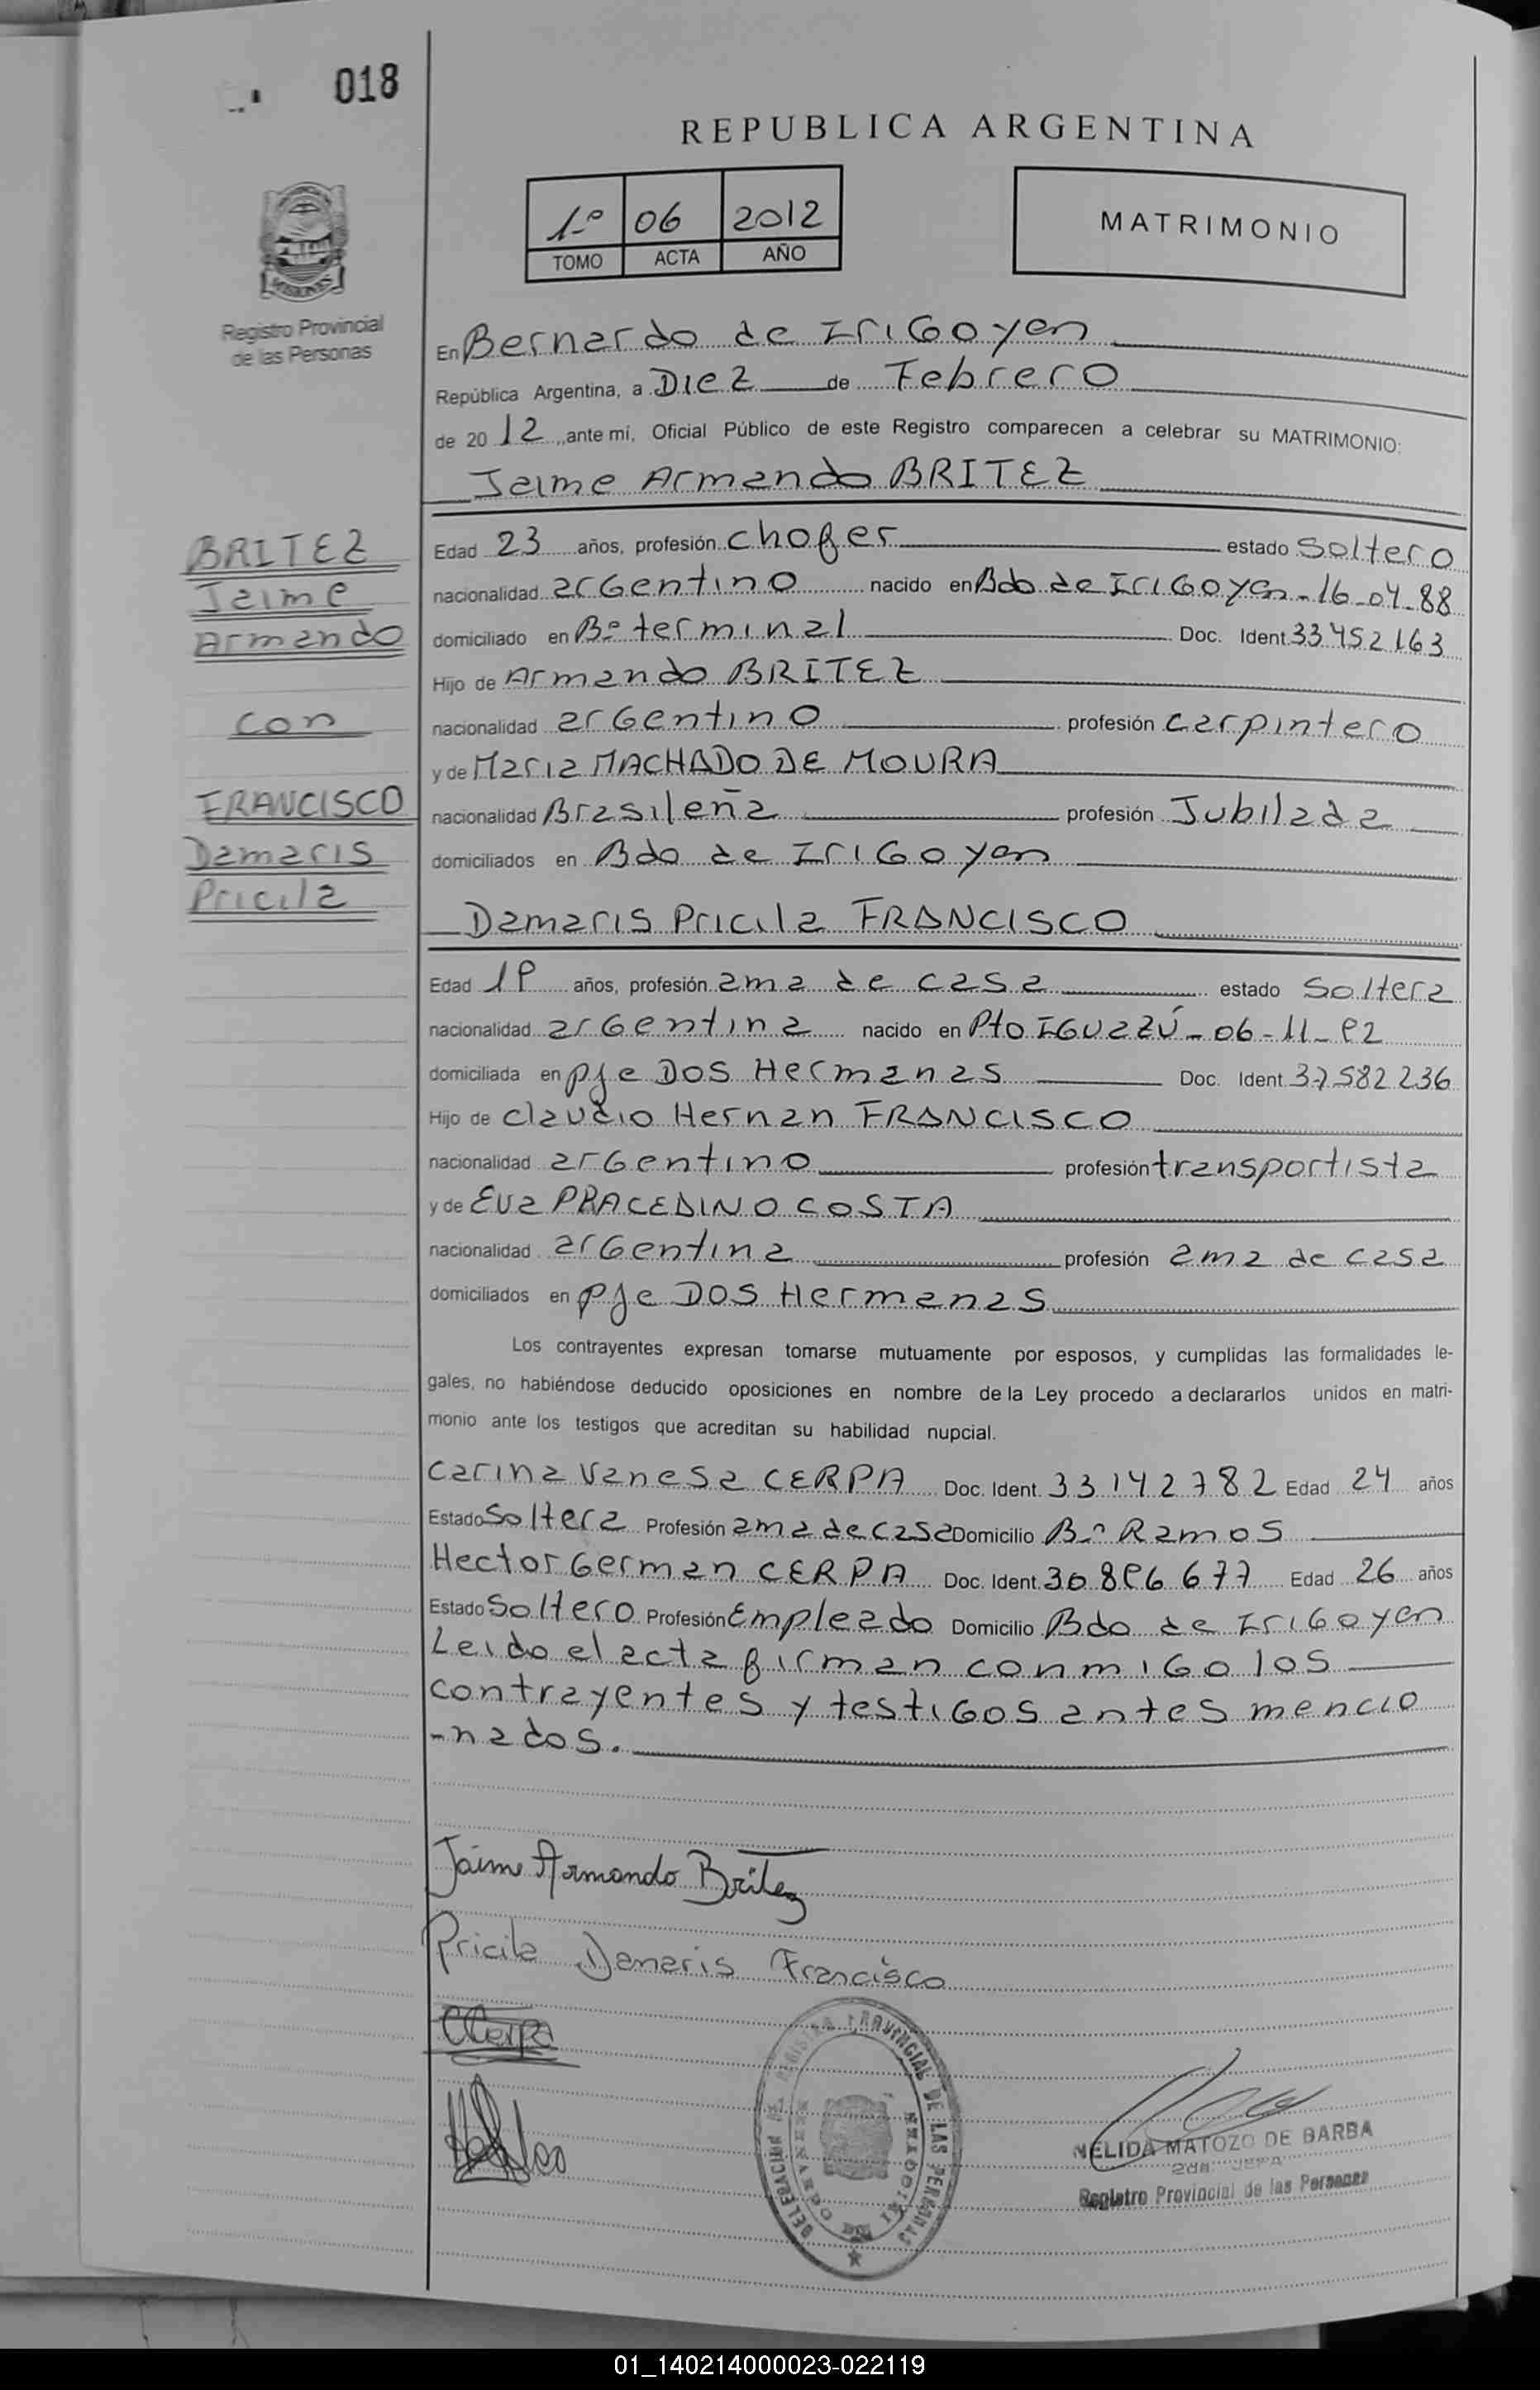 018
REPUBLICA ARGENTINA
1º 06 2012
TOMO ACTA AÑO
MATRIMONIO
MISIONES
Registro Provincial
de las Personas
En Bernardo de Irigoyen
República Argentina, a Diez de Febrero
de 2012, ante mí, Oficial Público de este Registro comparecen a celebrar su MATRIMONIO:
Jaime Armando BRITEZ
BRITEZ
Jaime
Armando
con
FRANCISCO
Damaris
Pricila
Edad 23 años, profesión chofer estado soltero
nacionalidad argentino nacido en Bdo de Irigoyen - 16-04-88
domiciliado en Bº terminal Doc. Ident. 33.452.163
Hijo de Armando BRITEZ
nacionalidad argentino profesión carpintero
y de Maria MACHADO DE MOURA
nacionalidad Brasileña profesión Jubilada
domiciliados en Bdo de Irigoyen
Damaris Pricila FRANCISCO
Edad 19 años, profesión ama de casa estado Soltera
nacionalidad argentina nacido en Pto IGUAZÚ - 06-11-92
domiciliada en pje DOS Hermanas Doc. Ident. 37.582.236
Hijo de claudio Hernan FRANCISCO
nacionalidad argentino profesión transportista
y de Eva PRACEDINO COSTA
nacionalidad argentina profesión ama de casa
domiciliados en pje DOS Hermanas
Los contrayentes expresan tomarse mutuamente por esposos, y cumplidas las formalidades le-
gales, no habiéndose deducido oposiciones en nombre de la Ley procedo a declararlos unidos en matri-
monio ante los testigos que acreditan su habilidad nupcial.
Carina Vanesa CERPA Doc. Ident. 33142782 Edad 24 años
Estado Soltera Profesión ama de casa Domicilio Bº Ramos
Hector German CERPA Doc. Ident. 30.896.677 Edad 26 años
Estado Soltero Profesión Empleado Domicilio Bdo de Irigoyen
Leido el acta firman conmigo los
contrayentes y testigos antes mencio
-nados.
Jaime Armando Britez
Pricila Damaris Francisco
CCerpa
DELEGACION DEL REGISTRO PROVINCIAL DE LAS PERSONAS
BERNARDO DE IRIGOYEN
NELIDA MATOZO DE BARBA
2da. JEFA
Registro Provincial de las Personas
01_140214000023-022119